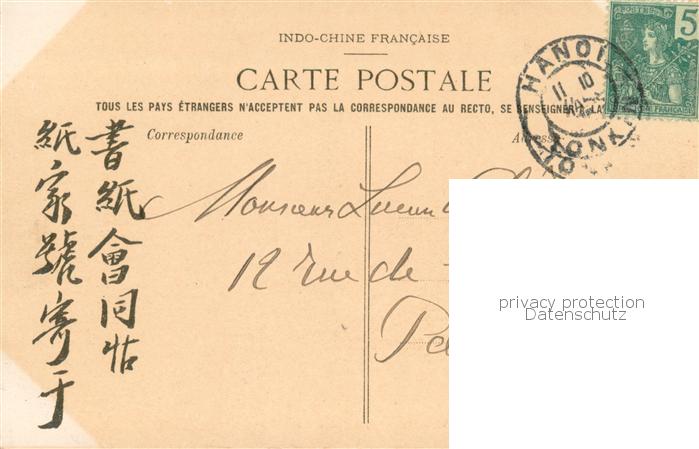 INDO-CHINE FRANÇAISE
CARTE POSTALE
TOUS LES PAYS ÉTRANGERS N'ACCEPTENT PAS LA CORRESPONDANCE AU RECTO, SE RENSEIGNER A LA
Correspondance
HANOI
TONKIN
5
書紙會同
紙家號寄于
Monsieur Lucien
12 rue de
privacy protection
Datenschutz